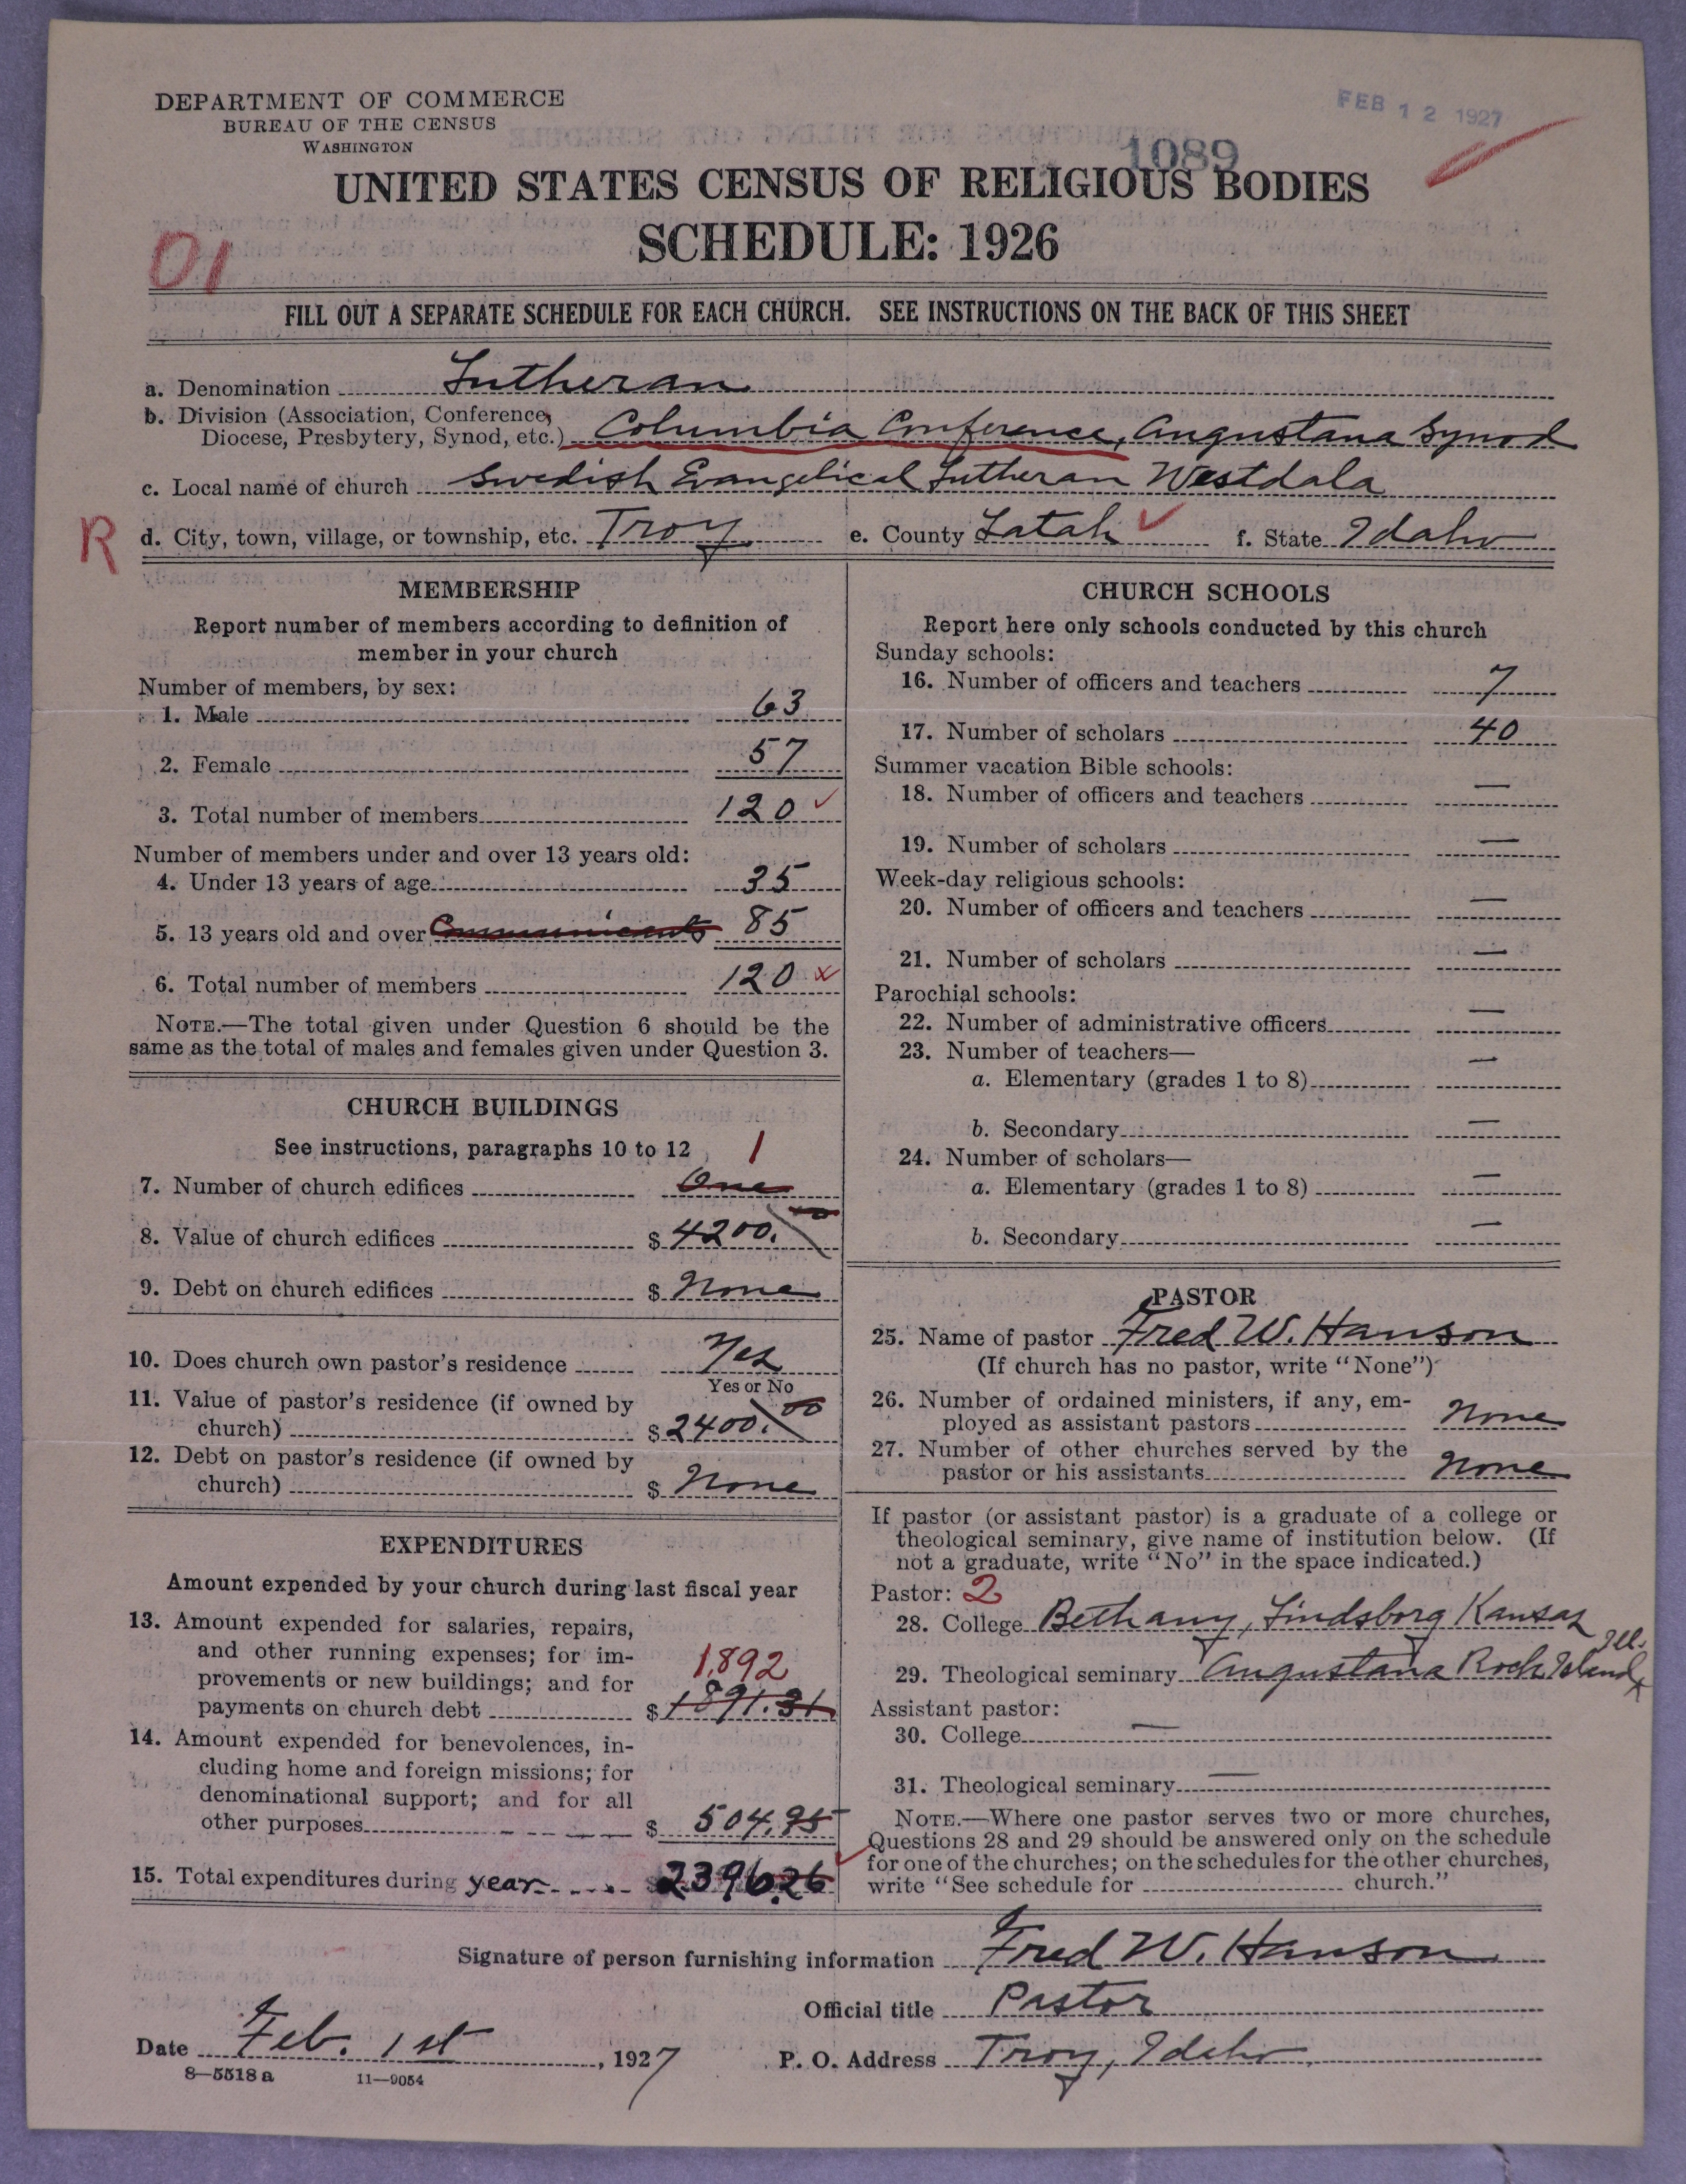 DEPARTMENT OF COMMERCE
BUREAU OF THE CENSUS
WASHINGTON
FEB 12 1927
1089
UNITED STATES CENSUS OF RELIGIOUS BODIES
SCHEDULE: 1926
01
FILL OUT A SEPARATE SCHEDULE FOR EACH CHURCH. SEE INSTRUCTIONS ON THE BACK OF THIS SHEET
a. Denomination Lutheran
b. Division (Association, Conference,
Diocese, Presbytery, Synod, etc.) Columbia Conference, Augustana Synod
c. Local name of church Swedish Evangelical Lutheran Westdala
R d. City, town, village, or township, etc. Troy e. County Latah f. State Idaho
MEMBERSHIP
Report number of members according to definition of
member in your church
Number of members, by sex:
1. Male 63
2. Female 57
3. Total number of members 120
Number of members under and over 13 years old:
4. Under 13 years of age 35
5. 13 years old and over Communicants 85
6. Total number of members 120
NOTE.—The total given under Question 6 should be the
same as the total of males and females given under Question 3.
CHURCH BUILDINGS
See instructions, paragraphs 10 to 12 1
7. Number of church edifices One
8. Value of church edifices $ 4200.00
9. Debt on church edifices $ None
10. Does church own pastor's residence Yes
Yes or No
11. Value of pastor's residence (if owned by
church) $ 2400.00
12. Debt on pastor's residence (if owned by
church) $ None
EXPENDITURES
Amount expended by your church during last fiscal year
13. Amount expended for salaries, repairs,
and other running expenses; for im-
provements or new buildings; and for 1,892
payments on church debt $ 1891.31
14. Amount expended for benevolences, in-
cluding home and foreign missions; for
denominational support; and for all
other purposes $ 504.95
15. Total expenditures during year $ 2396.26
CHURCH SCHOOLS
Report here only schools conducted by this church
Sunday schools:
16. Number of officers and teachers 7
17. Number of scholars 40
Summer vacation Bible schools:
18. Number of officers and teachers —
19. Number of scholars —
Week-day religious schools:
20. Number of officers and teachers —
21. Number of scholars —
Parochial schools:
22. Number of administrative officers —
23. Number of teachers—
a. Elementary (grades 1 to 8) —
b. Secondary —
24. Number of scholars—
a. Elementary (grades 1 to 8) —
b. Secondary —
PASTOR
25. Name of pastor Fred W. Hanson
(If church has no pastor, write "None")
26. Number of ordained ministers, if any, em-
ployed as assistant pastors None
27. Number of other churches served by the
pastor or his assistants None
If pastor (or assistant pastor) is a graduate of a college or
theological seminary, give name of institution below. (If
not a graduate, write "No" in the space indicated.)
Pastor: 2
28. College Bethany, Lindsborg Kansas
29. Theological seminary Augustana Rock Island, Ill.
Assistant pastor:
30. College —
31. Theological seminary —
NOTE.—Where one pastor serves two or more churches,
Questions 28 and 29 should be answered only on the schedule
for one of the churches; on the schedules for the other churches,
write "See schedule for church."
Signature of person furnishing information Fred W. Hanson
Official title Pastor
Date Feb. 1st, 1927 P. O. Address Troy, Idaho
8—5518 a 11—9054